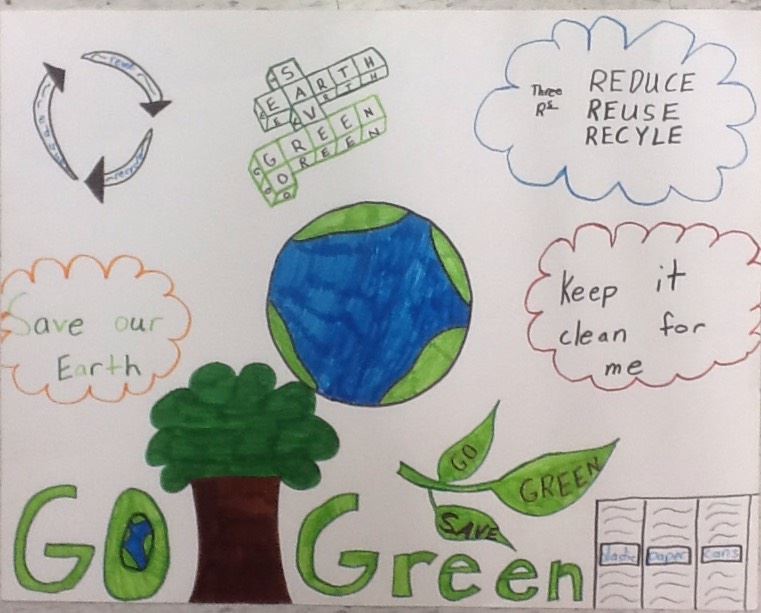 reuse
recycle
S
EARTH
V
GREEN
O
Three
Rs
REDUCE
REUSE
RECYLE
Save our
Earth
Keep it
clean for
me
GO
GREEN
SAVE
GO Green
plastic
paper
cans